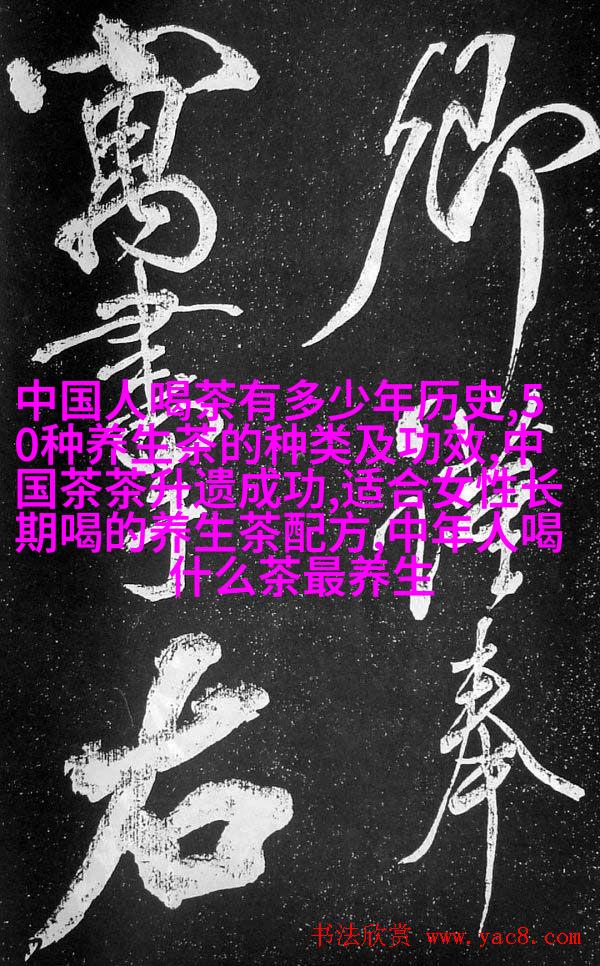 卿 奉
寓書 右
中国人喝茶有多少年历史,5
0种养生茶的种类及功效,中
国茶茶升遗成功,适合女性长
期喝的养生茶配方,中年人喝
什么茶最养生
书法欣赏 www.yac8.com